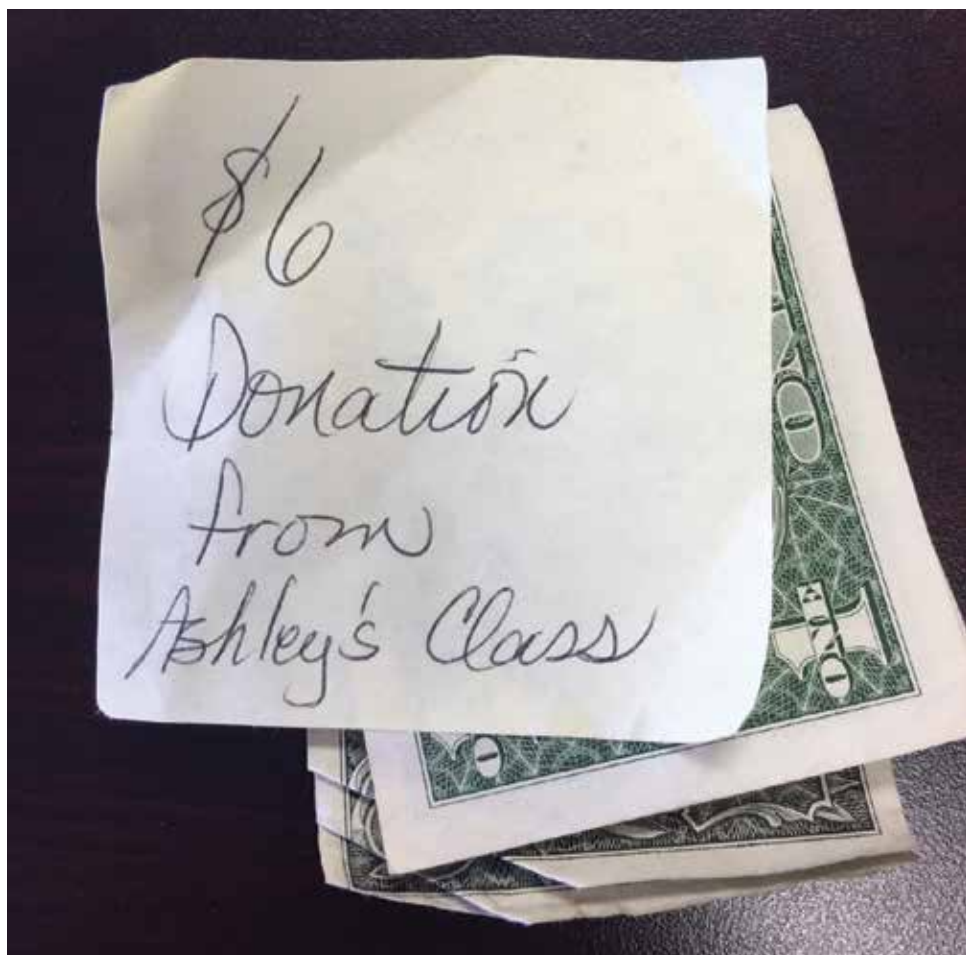 $6
Donation
from
Ashley's Class
ONE